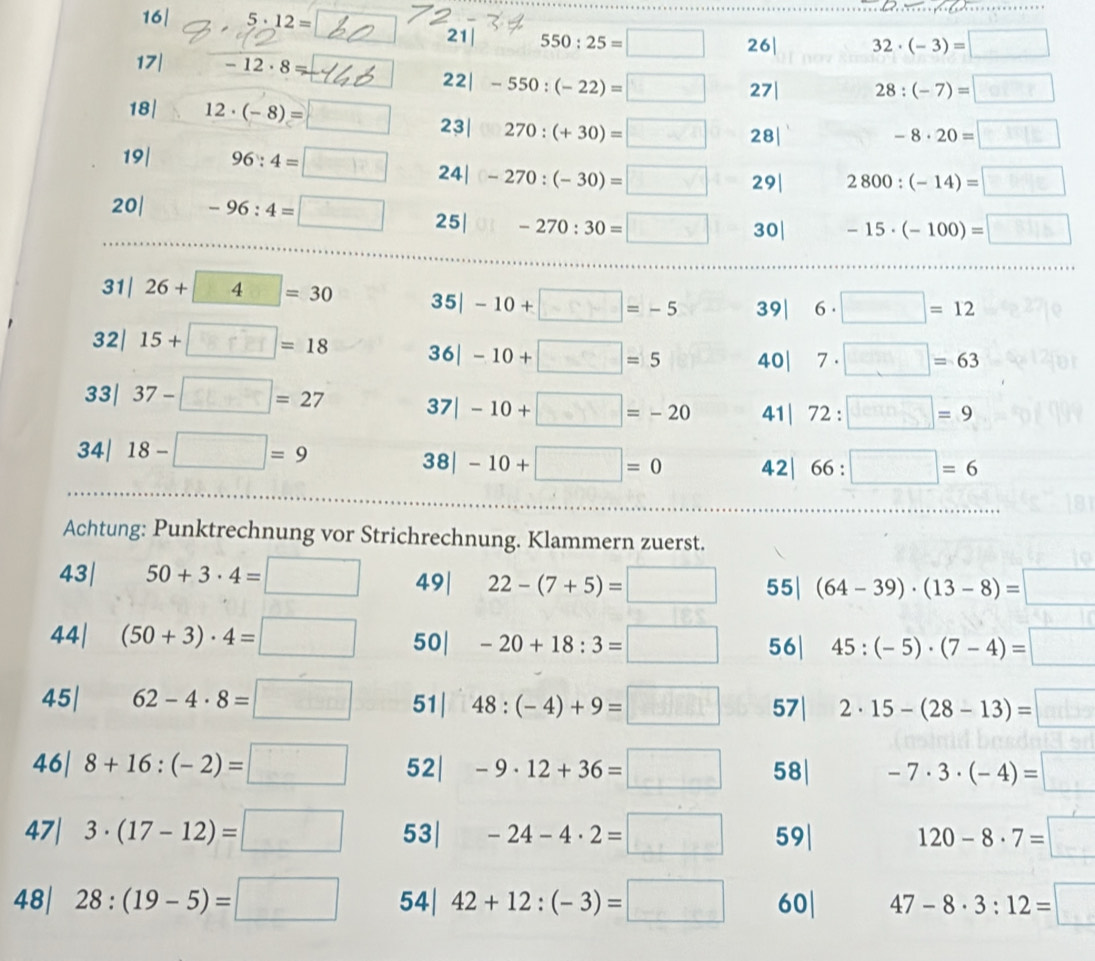 16| 5 · 12 = 60
17| - 12 · 8 =
18| 12 · (- 8) =
19| 96 : 4 =
20| - 96 : 4 =
21| 550 : 25 =
22| - 550 : (- 22) =
23| 270 : (+ 30) =
24| - 270 : (- 30) =
25| - 270 : 30 =
26| 32 · (- 3) =
27| 28 : (- 7) =
28| - 8 · 20 =
29| 2 800 : (- 14) =
30| - 15 · (- 100) =
31| 26 + 4 = 30
32| 15 + = 18
33| 37 - = 27
34| 18 - = 9
35| - 10 + = - 5
36| - 10 + = 5
37| - 10 + = - 20
38| - 10 + = 0
39| 6 · = 12
40| 7 · = 63
41| 72 : = 9
42| 66 : = 6
Achtung: Punktrechnung vor Strichrechnung. Klammern zuerst.
43| 50 + 3 · 4 =
44| (50 + 3) · 4 =
45| 62 - 4 · 8 =
46| 8 + 16 : (- 2) =
47| 3 · (17 - 12) =
48| 28 : (19 - 5) =
49| 22 - (7 + 5) =
50| - 20 + 18 : 3 =
51| 48 : (- 4) + 9 =
52| - 9 · 12 + 36 =
53| - 24 - 4 · 2 =
54| 42 + 12 : (- 3) =
55| (64 - 39) · (13 - 8) =
56| 45 : (- 5) · (7 - 4) =
57| 2 · 15 - (28 - 13) =
58| - 7 · 3 · (- 4) =
59| 120 - 8 · 7 =
60| 47 - 8 · 3 : 12 =